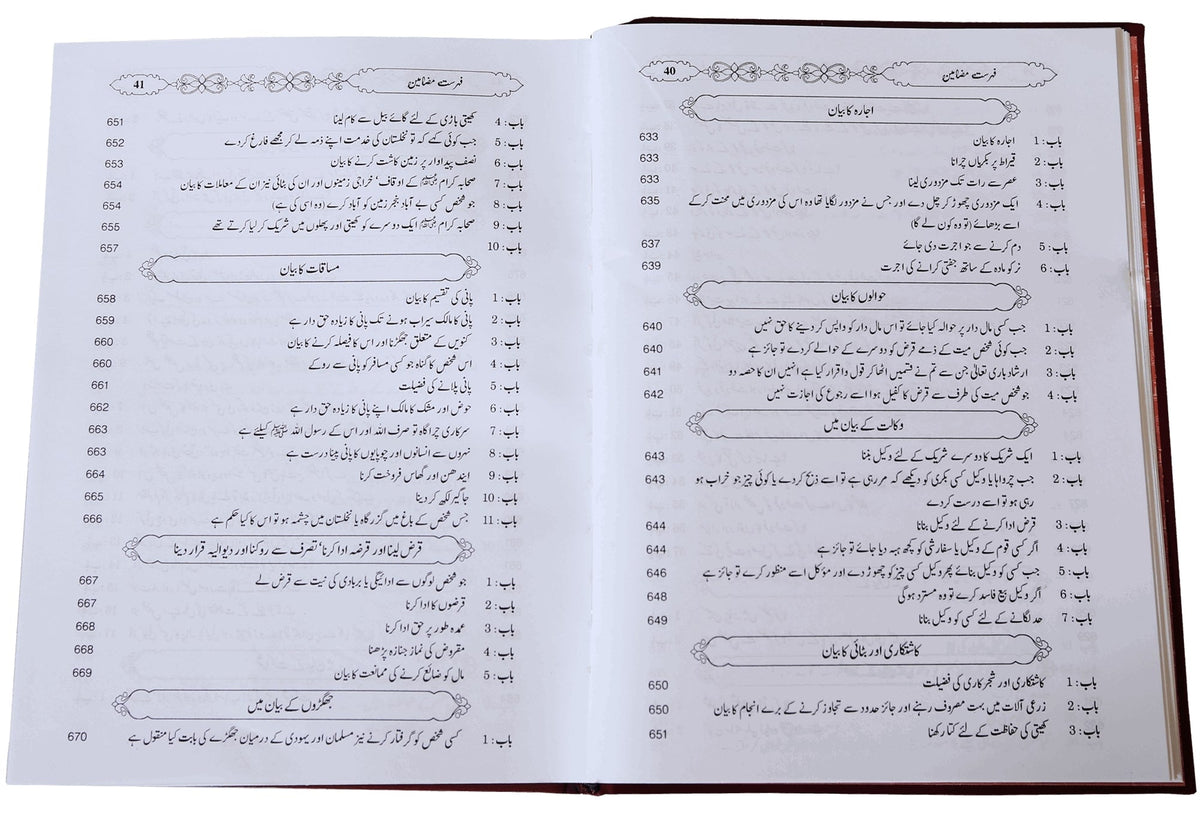 40 فہرست مضامین
اجارہ کا بیان
باب: 1 اجارہ کا بیان 633
باب: 2 قیراط پر بکریاں چرانا 633
باب: 3 عصر سے رات تک مزدوری لینا 633
باب: 4 ایک مزدوری چھوڑ کر چل دے اور جس نے مزدور لگایا تھا وہ اس کی مزدوری میں محنت کر کے 635
اسے بڑھائے (تو وہ کون لے گا)
باب: 5 دم کرنے سے جو اجرت دی جائے 637
باب: 6 نر کو مادہ کے ساتھ جفتی کرانے کی اجرت 639
حوالوں کا بیان
باب: 1 جب کسی مال دار پر حوالہ کیا جائے تو اس مال دار کو واپس کر دینے کا حق نہیں 640
باب: 2 جب کوئی شخص میت کے ذمے قرض کو دوسرے کے حوالے کر دے تو جائز ہے 640
باب: 3 ارشاد باری تعالیٰ جن سے تم نے قسمیں اٹھا کر قول و اقرار کیا ہے انہیں ان کا حصہ دو 641
باب: 4 جو شخص میت کی طرف سے قرض کا کفیل ہوا اسے رجوع کی اجازت نہیں 642
وکالت کے بیان میں
باب: 1 ایک شریک کا دوسرے شریک کے لئے وکیل بننا 643
باب: 2 جب چرواہا یا وکیل کسی بکری کو دیکھے کہ مر رہی ہے تو اسے ذبح کر دے یا کوئی چیز جو خراب ہو 643
رہی ہو تو اسے درست کر دے
باب: 3 قرض ادا کرنے کے لئے وکیل بنانا 644
باب: 4 اگر کسی قوم کے وکیل یا سفارشی کو کچھ ہبہ دیا جائے تو جائز ہے 644
باب: 5 جب کسی کو وکیل بنائے پھر وکیل کسی چیز کو چھوڑ دے اور مؤکل اسے منظور کرے تو جائز ہے 646
باب: 6 اگر وکیل بیع فاسد کرے تو وہ مسترد ہو گی 648
باب: 7 حد لگانے کے لئے کسی کو وکیل بنانا 649
کاشتکاری اور بٹائی کا بیان
باب: 1 کاشتکاری اور شجرکاری کی فضیلت 650
باب: 2 زرعی آلات میں بہت مصروف رہنے اور جائز حدود سے تجاوز کرنے کے برے انجام کا بیان 650
باب: 3 کھیتی کی حفاظت کے لئے کتا رکھنا 651
41 فہرست مضامین
باب: 4 کھیتی باڑی کے لئے گائے بیل سے کام لینا 651
باب: 5 جب کوئی کہے کہ تو نخلستان کی خدمت اپنے ذمہ لے کر مجھے فارغ کر دے 652
باب: 6 نصف پیداوار پر زمین کاشت کرنے کا بیان 653
باب: 7 صحابہ کرام کے اوقاف، خراجی زمینوں اور ان کی بٹائی نیز ان کے معاملات کا بیان 654
باب: 8 جو شخص کسی بے آباد بنجر زمین کو آباد کرے (وہ اسی کی ہے) 654
باب: 9 صحابہ کرام ایک دوسرے کو کھیتی اور پھلوں میں شریک کر لیا کرتے تھے 655
باب: 10 657
مساقات کا بیان
باب: 1 پانی کی تقسیم کا بیان 658
باب: 2 پانی کا مالک سیراب ہونے تک پانی کا زیادہ حق دار ہے 659
باب: 3 کنویں کے متعلق جھگڑنا اور اس کا فیصلہ کرنے کا بیان 660
باب: 4 اس شخص کا گناہ جو کسی مسافر کو پانی سے روکے 660
باب: 5 پانی پلانے کی فضیلت 661
باب: 6 حوض اور مشک کا مالک اپنے پانی کا زیادہ حق دار ہے 662
باب: 7 سرکاری چراگاہ تو صرف اللہ اور اس کے رسول اللہ ﷺ کیلئے ہے 663
باب: 8 نہروں سے انسانوں اور چوپایوں کا پانی پینا درست ہے 663
باب: 9 ایندھن اور گھاس فروخت کرنا 664
باب: 10 جاگیر لکھ کر دینا 665
باب: 11 جس شخص کے باغ میں گزرگاہ یا نخلستان میں چشمہ ہو تو اس کا کیا حکم ہے 666
قرض لینا اور قرضہ ادا کرنا، تصرف سے روکنا اور دیوالیہ قرار دینا
باب: 1 جو شخص لوگوں سے ادائیگی یا بربادی کی نیت سے قرض لے 667
باب: 2 قرضوں کا ادا کرنا 667
باب: 3 عمدہ طور پر حق ادا کرنا 668
باب: 4 مقروض کی نماز جنازہ پڑھنا 668
باب: 5 مال کو ضائع کرنے کی ممانعت کا بیان 669
جھگڑوں کے بیان میں
باب: 1 کسی شخص کو گرفتار کرنے نیز مسلمان اور یہودی کے درمیان جھگڑے کی بابت کیا منقول ہے 670